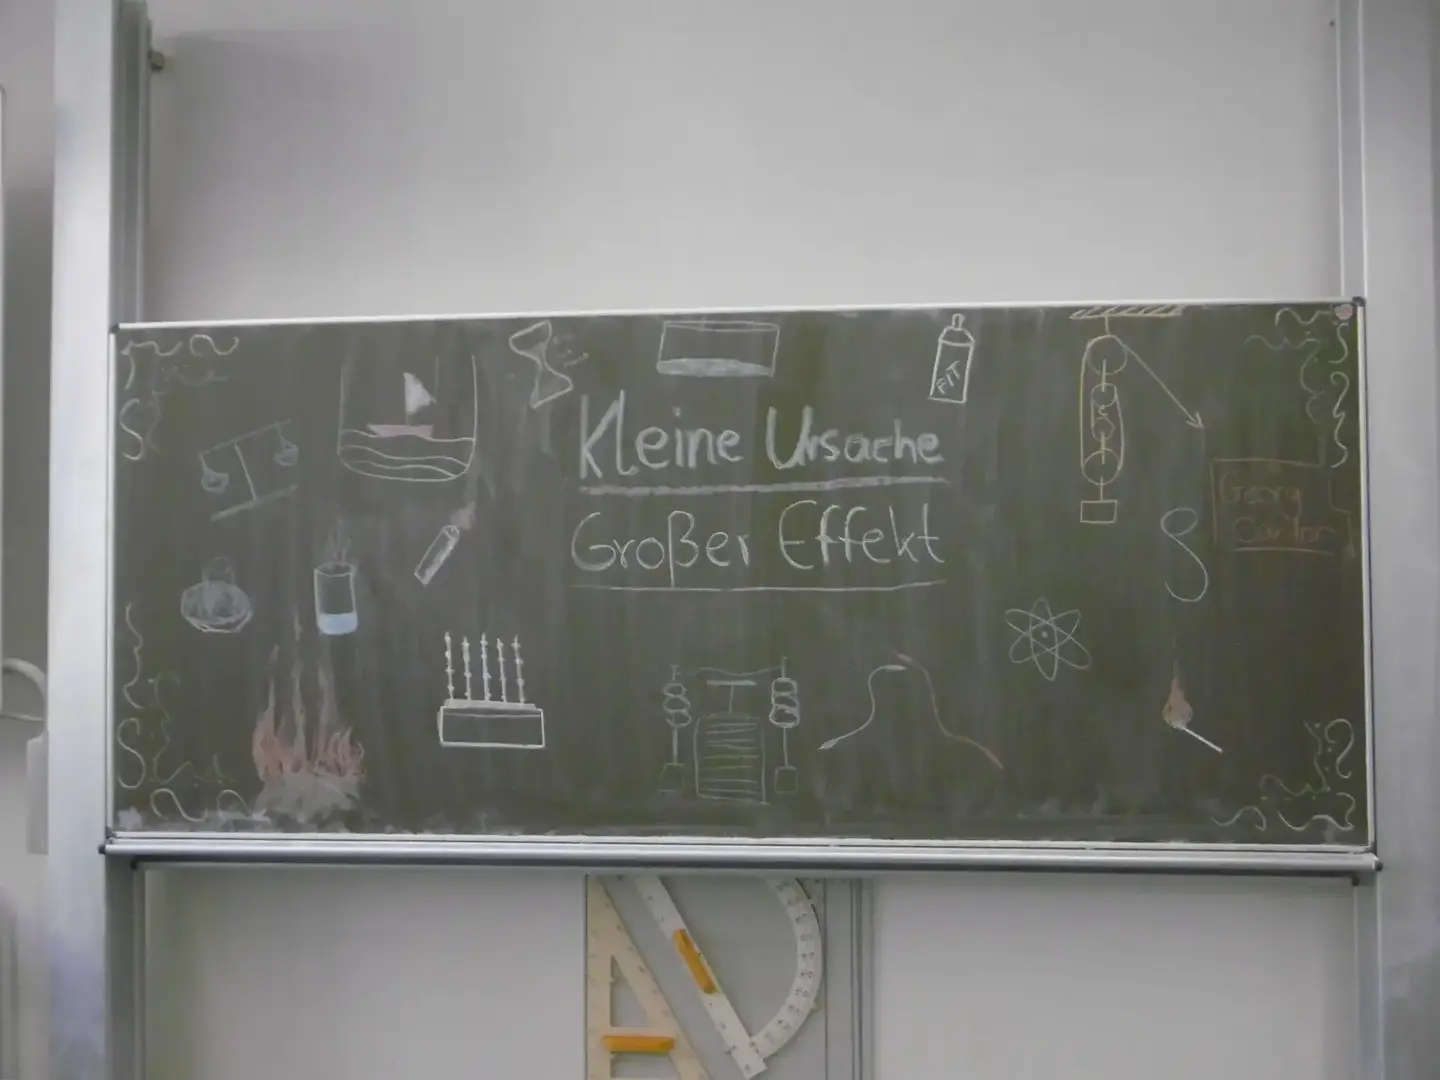 FIT
Kleine Ursache
Großer Effekt
Georg
Cantor